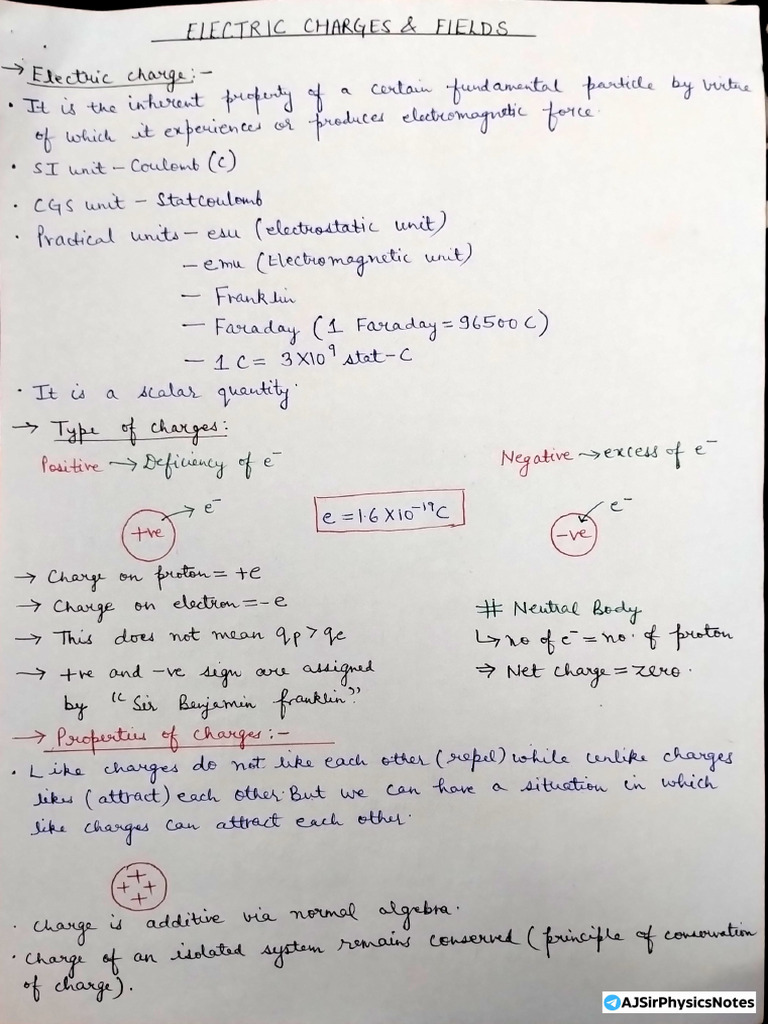 ELECTRIC CHARGES & FIELDS
→ Electric charge:-
• It is the inherent property of a certain fundamental particle by virtue
of which it experiences or produces electromagnetic force.
• SI unit - Coulomb (C)
• CGS unit - Statcoulomb
• Practical units - esu (electrostatic unit)
- emu (Electromagnetic unit)
- Franklin
- Faraday (1 Faraday = 96500 C)
- 1 C = 3×10⁹ stat-C
• It is a scalar quantity.
→ Type of charges:
Positive → Deficiency of e⁻
Negative → excess of e⁻
e⁻
+ve
e = 1.6×10⁻¹⁹C
e⁻
-ve
→ Charge on proton = +e
→ Charge on electron = -e
→ This does not mean qp > qe
→ +ve and -ve sign are assigned
by "Sir Benjamin franklin".
# Neutral Body
↳ no of e⁻ = no. of proton
⇒ Net charge = zero.
→ Properties of charges:-
• Like charges do not like each other (repel) while unlike charges
likes (attract) each other. But we can have a situation in which
like charges can attract each other.
+ + + +
• Charge is additive via normal algebra.
• Charge of an isolated system remains conserved (principle of conservation
of charge).
AJSirPhysicsNotes